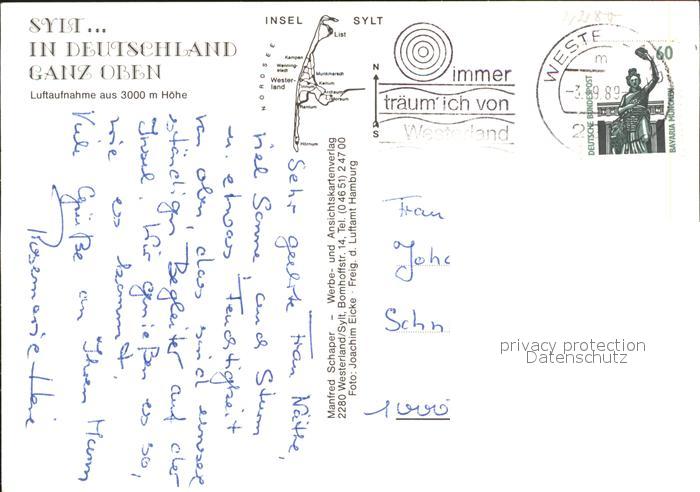 SYLT...
IN DEUTSCHLAND
GANZ OBEN
Luftaufnahme aus 3000 m Höhe
INSEL SYLT
List
Kampen
Westerland
Hörnum
NORDSEE
N
S
immer
träum' ich von
Westerland
WESTE
60
DEUTSCHE BUNDESPOST
BAVARIA MÜNCHEN
Manfred Schaper – Werbe- und Ansichtskartenverlag
2280 Westerland/Sylt, Bomhoffstr. 14, Tel. (0 46 51) 2 47 00
Foto: Joachim Eicke · Freig. d. Luftamt Hamburg
Sehr geehrte Frau Näthe,
viel Sonne, auch Sturm
u. etwas Feuchtigkeit
von oben, das sind unsere
ständigen Begleiter auf der
Insel. Wir genießen es so,
wie es kommt.
Viele Grüße an Ihren Mann
Rosemarie
Frau
Joh
Schn
1000
privacy protection
Datenschutz